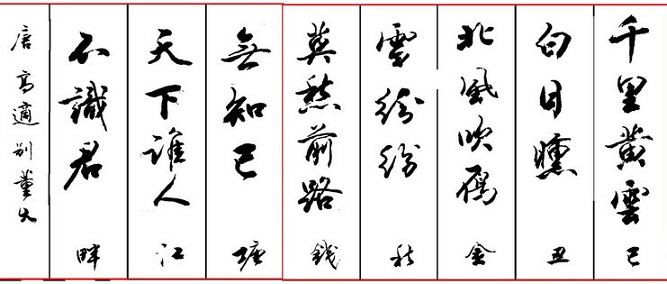 千里黄雲 己
白日曛 丑
北風吹雁 金
雪紛紛 秋
莫愁前路 錢
無知己 塘
天下誰人 江
不識君 畔
唐高適別董大